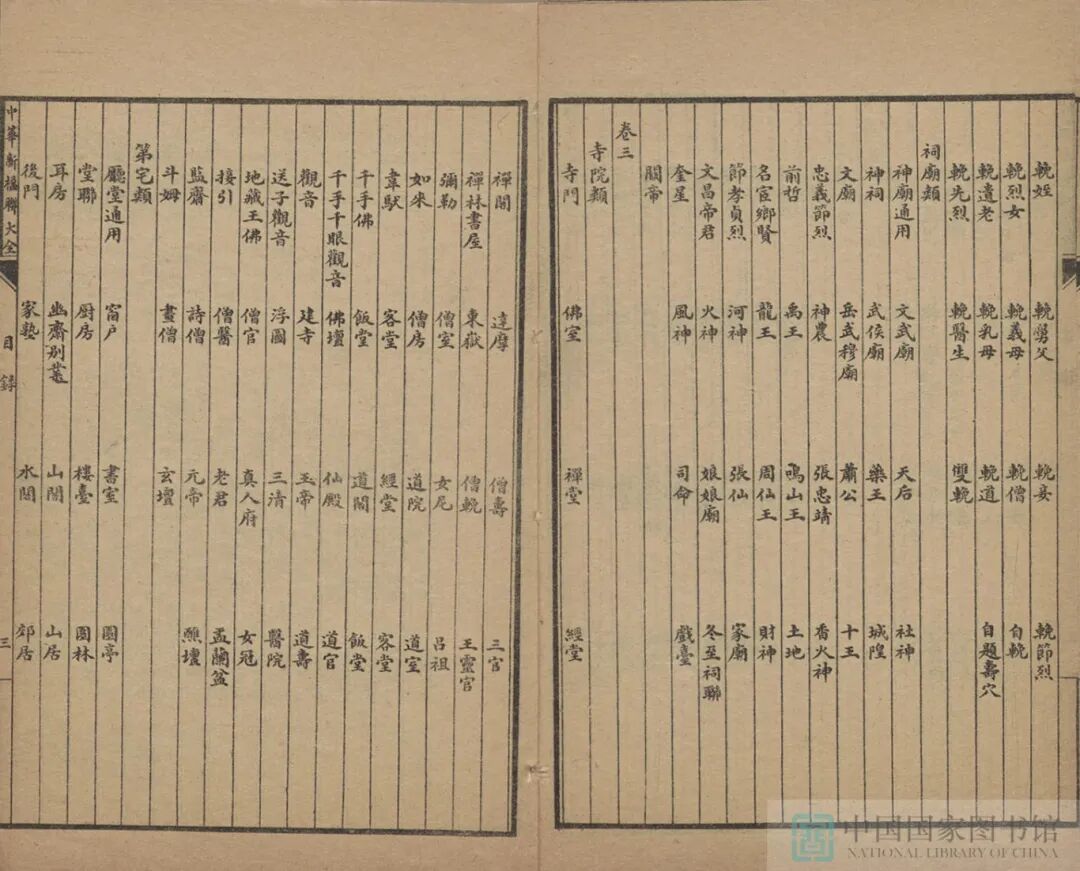 輓姪 輓舅父 輓妾 輓節烈
輓烈女 輓義母 輓僧 自輓
輓遺老 輓乳母 輓道 自題壽穴
輓先烈 輓醫生 雙輓
祠廟類
神廟通用 文武廟 天后 社神
神祠 武侯廟 藥王 城隍
文廟 岳武穆廟 蕭公 十王
忠義節烈 神農 張忠靖 香火神
前哲 禹王 鳴山王 土地
名宦鄉賢 龍王 周仙王 財神
節孝貞烈 河神 張仙 家廟
文昌帝君 火神 娘娘廟 冬至祠聯
奎星 風神 司命 戲臺
關帝
卷三
寺院類
寺門 佛室 禪堂 經堂
禪關 達摩 僧壽 三官
禪林書屋 東嶽 僧輓 王靈官
彌勒 僧室 女尼 呂祖
如來 僧房 道院 道室
韋馱 客堂 經堂 客堂
千手佛 飯堂 道閣 飯堂
千手千眼觀音 佛壇 仙殿 道官
觀音 建寺 玉帝 道壽
送子觀音 浮圖 三清 醫院
地藏王佛 僧官 真人府 女冠
接引 僧醫 老君 盂蘭盆
監齋 詩僧 元帝 醮壇
斗姆 畫僧 玄壇
第宅類
廳堂通用 窗户 書室 園亭
堂聯 廚房 樓臺 園林
耳房 幽齋別業 山閣 山居
後門 家塾 水閣 郊居
中華新楹聯大全 目錄 三
中国国家图书馆
NATIONAL LIBRARY OF CHINA